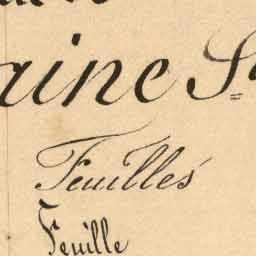 aine S
Feuilles
Feuille